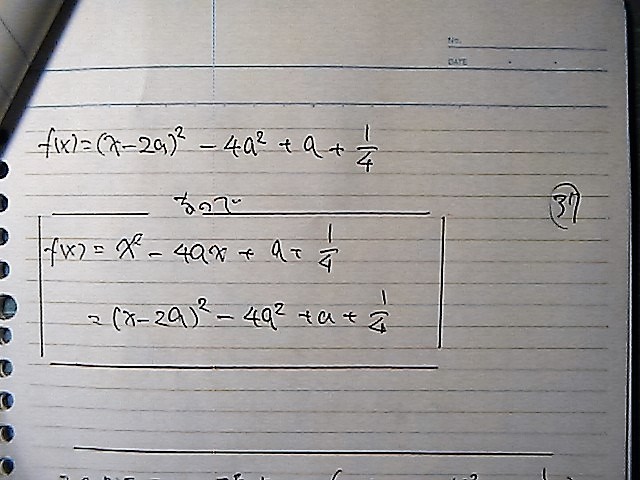 No.
DATE
f(x)=(x-2a)² - 4a² + a + 1/4
よって
f(x) = x² - 4ax + a + 1/4
= (x-2a)² - 4a² + a + 1/4